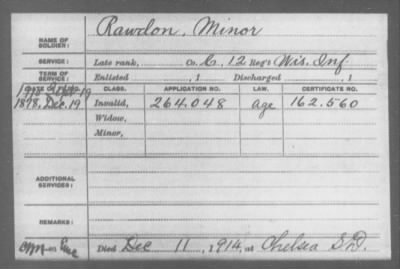 NAME OF SOLDIER: Rawdon, Minor
SERVICE: Late rank, Co. C, 12 Reg't Wis. Inf.
TERM OF SERVICE: Enlisted , 1 Discharged , 1
CLASS. APPLICATION NO. LAW. CERTIFICATE NO.
1878, Dec. 19 Invalid, 264.048 Age 162.560
Widow,
Minor,
ADDITIONAL SERVICES:
REMARKS:
Died Dec 11, 1914, at Chelsea S.D.